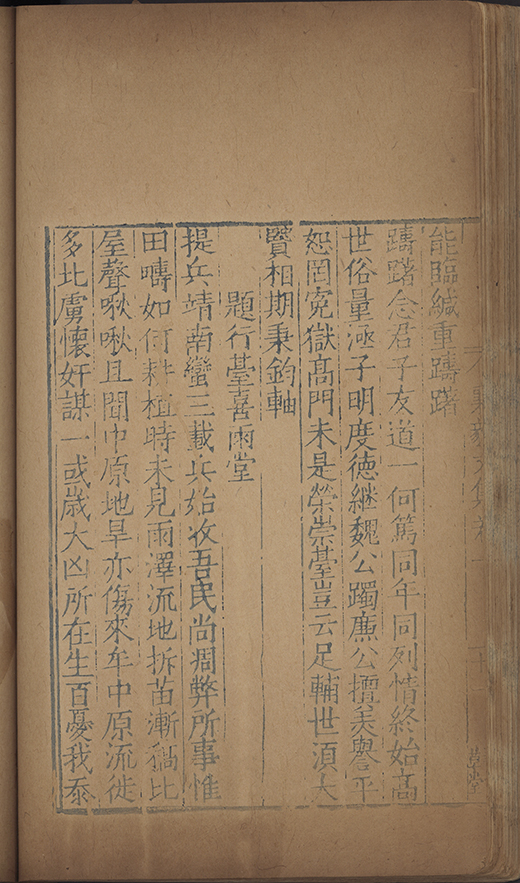 能臨緘重躊躇
躊躇念君子友道一何篤同年同列情終始高
世俗量涵子明度德継魏公躅廉公擅美譽平
恕罔寃獄高門未是榮崇臺豈云足輔世湏大
賢相期秉鈞軸
題行臺喜雨堂
提兵靖南蠻三載兵始收吾民尚凋弊所事惟
田疇如何耕植時未見雨澤流地拆苗漸稿比
屋聲啾啾且聞中原地旱亦傷來牟中原流徙
多北虜懷奸謀一或歳大凶所在生百憂我忝